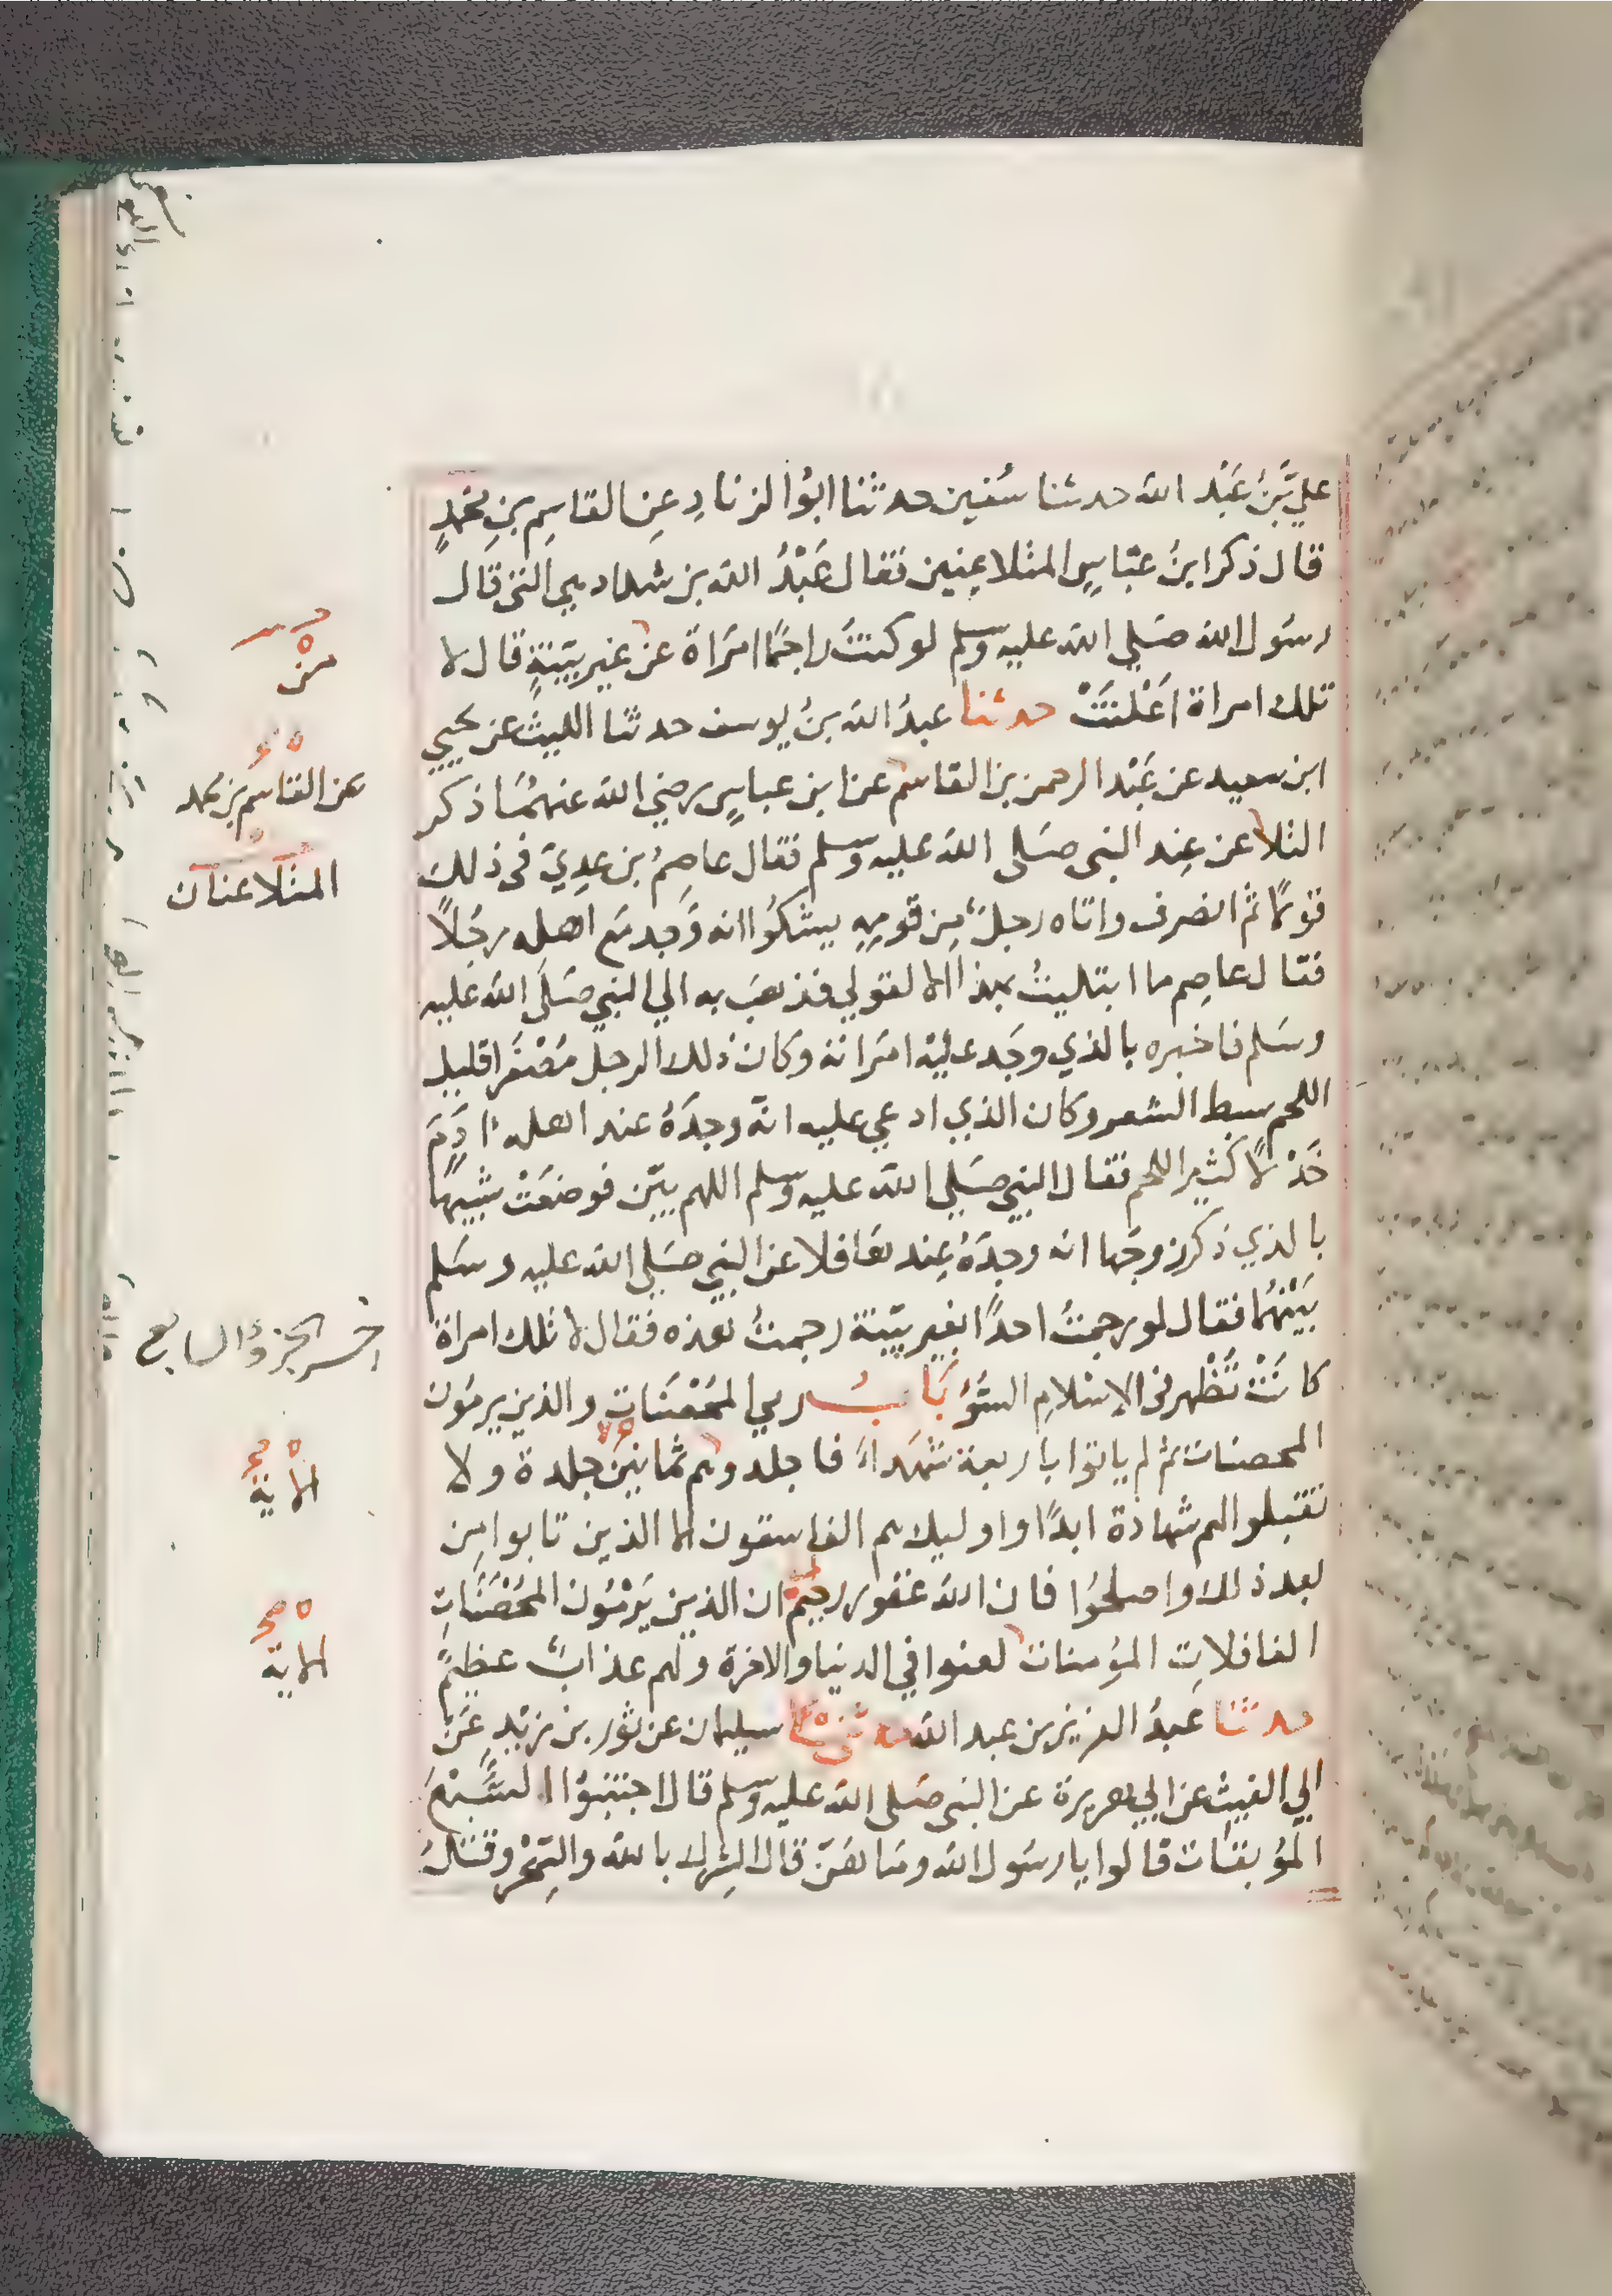 عليُّ بنُ عَبْد الله حدثنا سُفين حدثنا ابوُ الزنادِ عنِ القاسِمِ بنِ محمدٍ
قال ذكر ابنُ عبّاسٍ المتلاعِنين فقال عَبْدُ الله بن شداد هي التى قال
رسُول الله صَلي الله عليه وسلم لو كنتُ راجمًا امرَاة عن غير بيّنةٍ قال لا
تلك امراة اَعْلنَتْ حدثنا عبدُ الله بنُ يوسف حدثنا الليثُ عن يحيي
ابن سعيد عن عَبْد الرحمن بن القاسم عن ابن عباسٍ رضي الله عنهمُا ذكر
التلاعن عِند النبى صَلى الله عليه وسلم فقال عاصِمُ بن عدِيّ فى ذلك
قولًا ثم انصرف واتاه رجلٌ مِن قومِهِ يشكوُا انه وَجد مَع اهله رجُلًا
فقال عاصِم ما ابتليتُ بهذا الا لقولي فذهبَ به الي النبي صَلى الله عليه
وسَلم فاخبره بالذي وجَد عليْه امرَاته وكان ذلك الرجل مصْفَرا قليل
اللحم سبط الشعر وكان الذي ادعي عليه انه وجدَهُ عند اهله اٰدَمَ
خَدْلًا كثير اللحم فقال النبي صَلي الله عليه وسلم اللهم بيّن فوضعَتْ شبيهًا
بالذي ذكر زوجها انه وجدَهُ عِندها فلاعن النبي صَلي الله عليه وسَلم
بَيْنهُما فقال لو رجمتُ احدًا بغير بيّنة رجمتُ هذه فقال لا تلك امراة
كانَتْ تُظْهر فى الإسْلامِ السُّوُ بَابُ رمي المحْصَنَات والذين يرمُون
المحصنات ثم لم ياتوا باربعة شهَداءَ فاجلدوهم ثمانينَ جلدة ولا
تقبلوا لهم شهادة ابدًا واوليك هم الفاسقون الا الذين تابوا مِن
بعد ذلك واصلحُوا فان الله غفور رحيم ان الذين يَرْمُون المحْصَنَاتِ
الغافلاتِ المؤمنات لعنوا في الدنيا والاخرة ولهم عذابٌ عظيمٌ
حدثنا عَبدُ العزيز بن عبد الله حدثنى سليمان عن ثور بن زيْدٍ عَنْ
ابي الغيث عن ابي هريرة عن النبى صَلى الله عليه وسلم قال اجتنبوُا السَّبْعَ
المُوبقات قالوا يا رسُول الله ومَا هُنّ قال الشِرك بالله والسِّحْر وقتلُ
مِنْ
عن القاسم بن محمد
المتلاعنان
اخر الجزؤ السابع
الاية
الاية